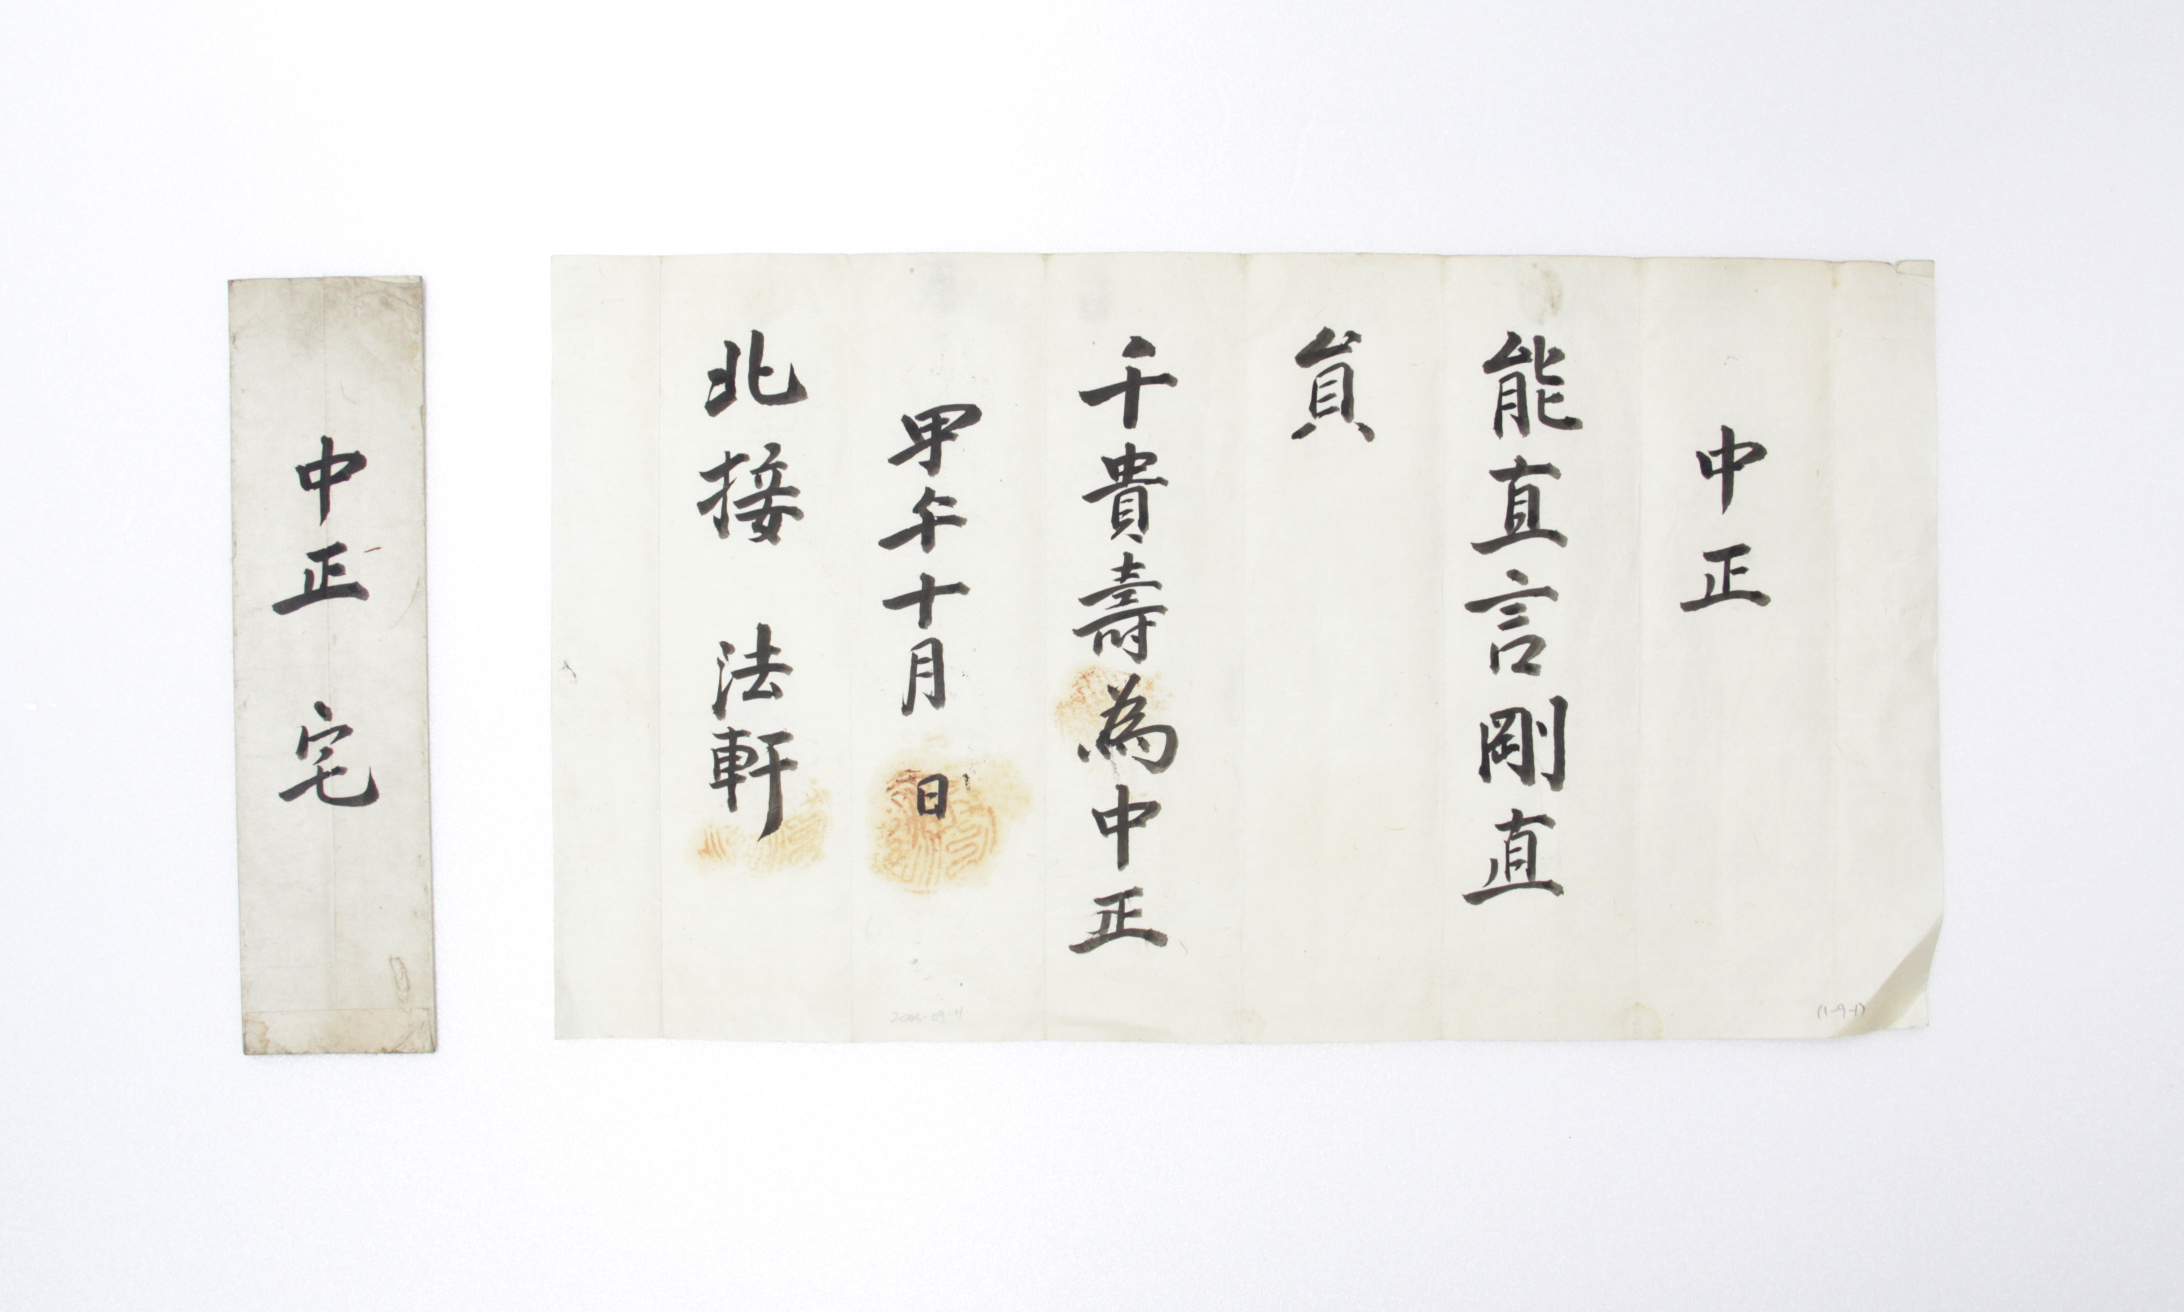 中正
能直言剛直
員
千貴壽為中正
甲午十月 日
北接 法軒
中正 宅
(1-9-1)